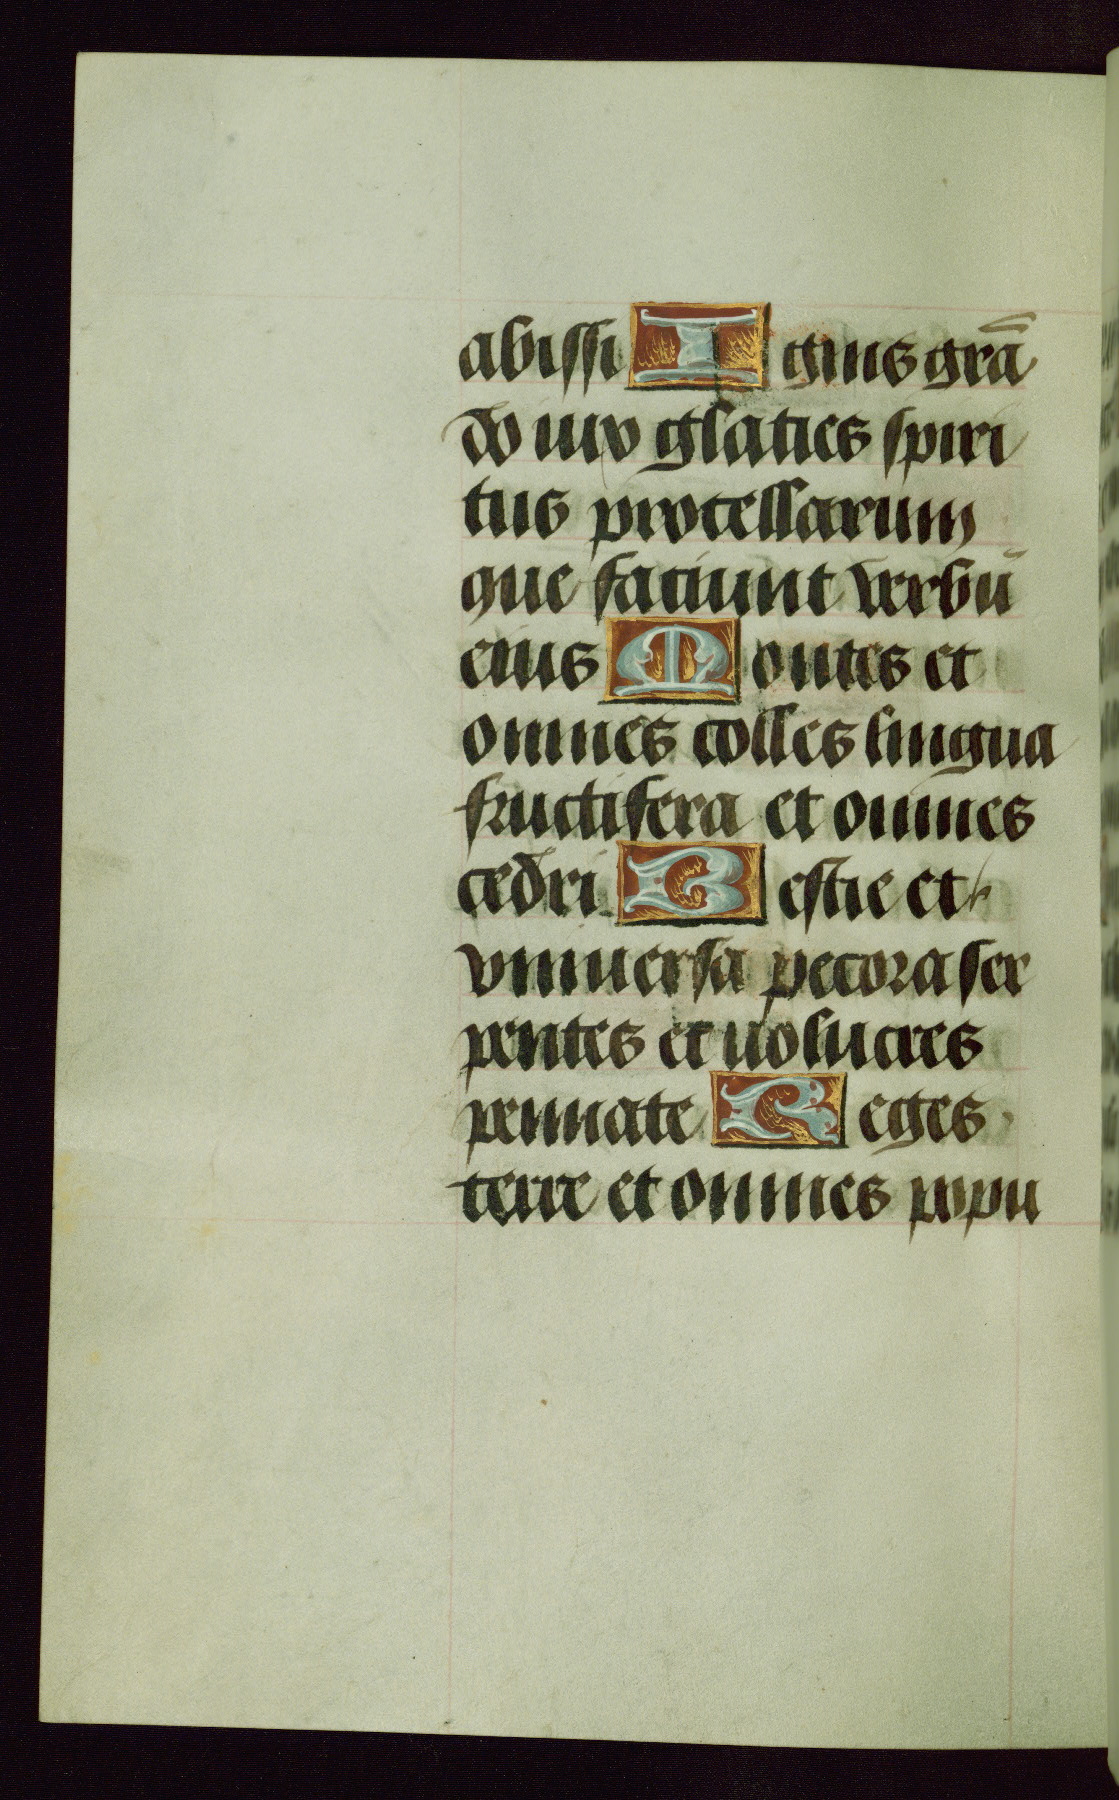 abissi Ignis grā
do nix glacies spiri
tus procellarum
que faciunt verbū
eius Montes et
omnes colles lingua
fructifera et omnes
cedri Bestie et
vniuersa pecora ser
pentes et uolucres
pennate Reges
terre et omnes popu